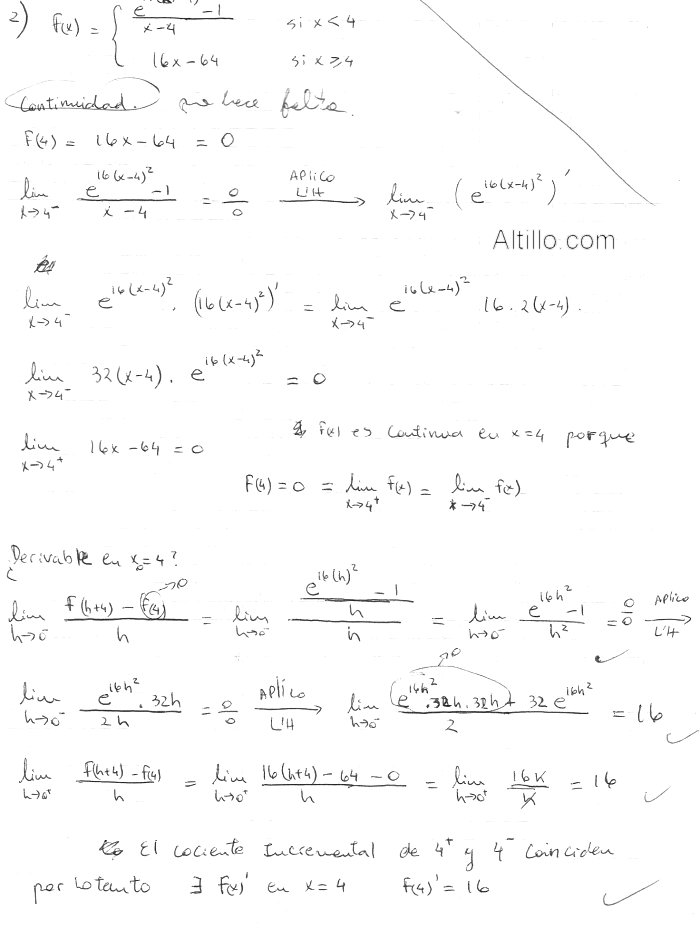 2) f(x) = { e^(16(x-4)^2) - 1 / x-4 si x < 4
16x - 64 si x ⩾ 4
Continuidad. no hace falta.
F(4) = 16x - 64 = 0
lim x→4⁻ e^(16(x-4)²) - 1 / x - 4 = 0/0 APLICO L'H → lim x→4⁻ (e^(16(x-4)²))'
Altillo.com
lim x→4⁻ e^(16(x-4)²) . (16(x-4)²)' = lim x→4⁻ e^(16(x-4)²) 16 . 2(x-4) .
lim x→4⁻ 32(x-4) . e^(16(x-4)²) = 0
lim x→4⁺ 16x - 64 = 0 f(x) es continua en x=4 porque
F(4) = 0 = lim x→4⁺ f(x) = lim x→4⁻ f(x)
¿Derivable en x₀=4?
lim h→0⁻ f(h+4) - f(4) →0 / h = lim h→0⁻ (e^(16(h)²) - 1 / h) / h = lim h→0⁻ e^(16h²) - 1 / h² = 0/0 APLICO L'H →
lim h→0⁻ e^(16h²) . 32h / 2h = 0/0 APLICO L'H → lim h→0⁻ e^(16h²) . 32h . 32h →0 + 32 e^(16h²) / 2 = 16
lim h→0⁺ f(h+4) - f(4) / h = lim h→0⁺ 16(h+4) - 64 - 0 / h = lim h→0⁺ 16h / h = 16
El cociente Incremental de 4⁺ y 4⁻ coinciden
por lo tanto ∃ f(x)' en x=4 f(4)' = 16